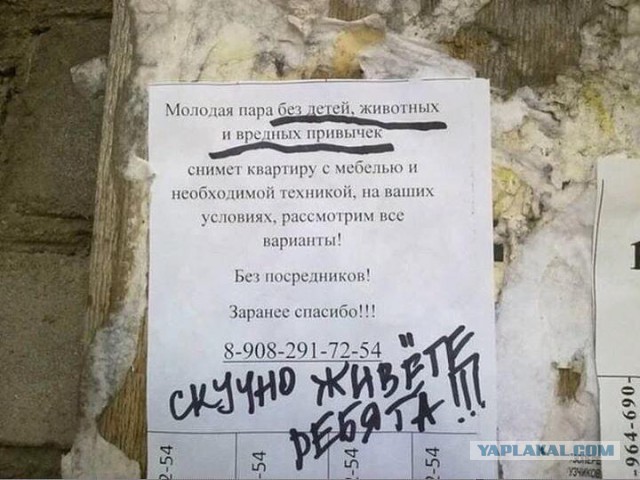 Молодая пара без детей, животных
и вредных привычек
снимет квартиру с мебелью и
необходимой техникой, на ваших
условиях, рассмотрим все
варианты!
Без посредников!
Заранее спасибо!!!
8-908-291-72-54
СКУЧНО ЖИВЁТЕ
РЕБЯТА!!!
2-54
-54
2-54
-54
1
-964-690-
YAPLAKAL.COM